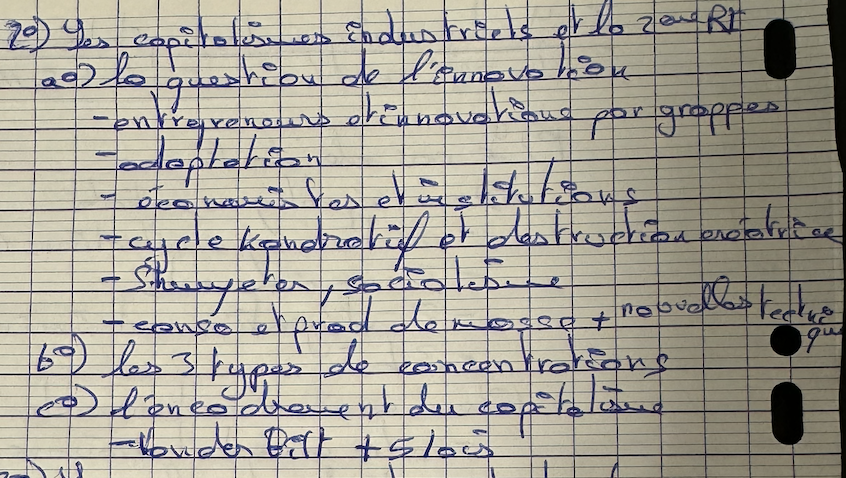 2°) Les capitalismes industriels et la 2ème RI
a°) la question de l'innovation
- entrepreneurs et innovations par grappes
- adaptation
- économistes et institutions
- cycle Kondratief et destruction créatrice
- Shumpeter, socialisme
- conso et prod de masse + nouvelles techniques
b°) les 3 types de concentrations
c°) l'encadrement du capitalisme
- Vander Bilt + 5 lois